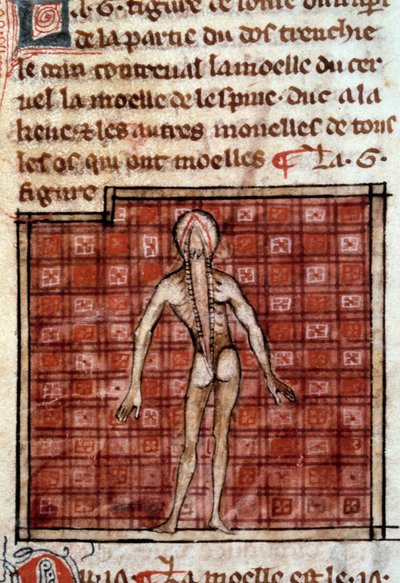 de la partie du dos trenchie
le cuir contreual la moelle du cer
uel la moelle de lespine. duc a la
keue ⁊ les autres mouelles de tous
les os qui ont moelles ¶ La .G.
figure
La moelle est le